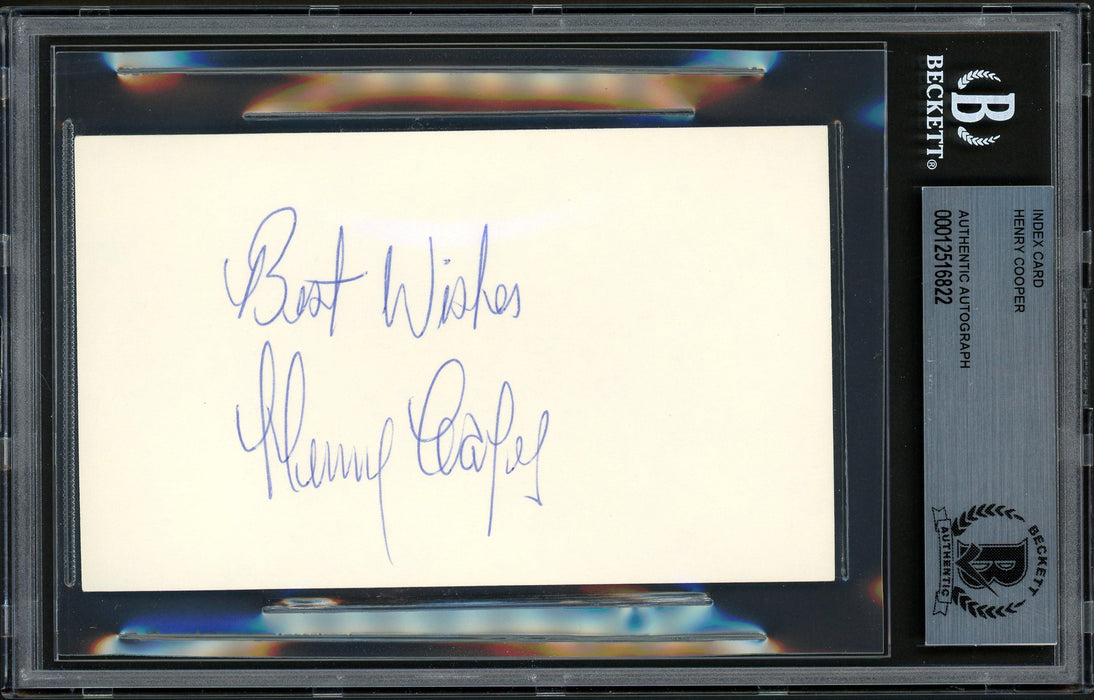 Best Wishes
Henry Cooper
B
BECKETT®
INDEX CARD
HENRY COOPER
AUTHENTIC AUTOGRAPH
00012516822
BECKETT
B
AUTHENTIC